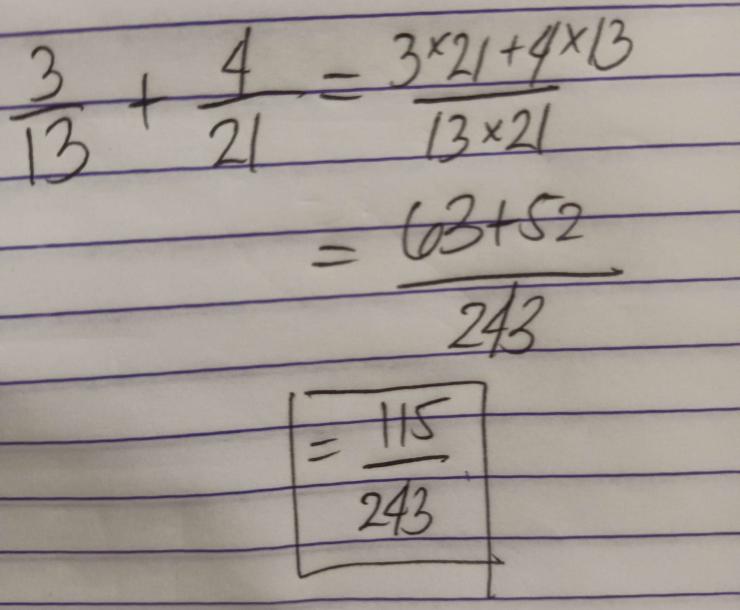 3/13 + 4/21 = (3×21+4×13)/(13×21)
= (63+52)/243
= 115/243